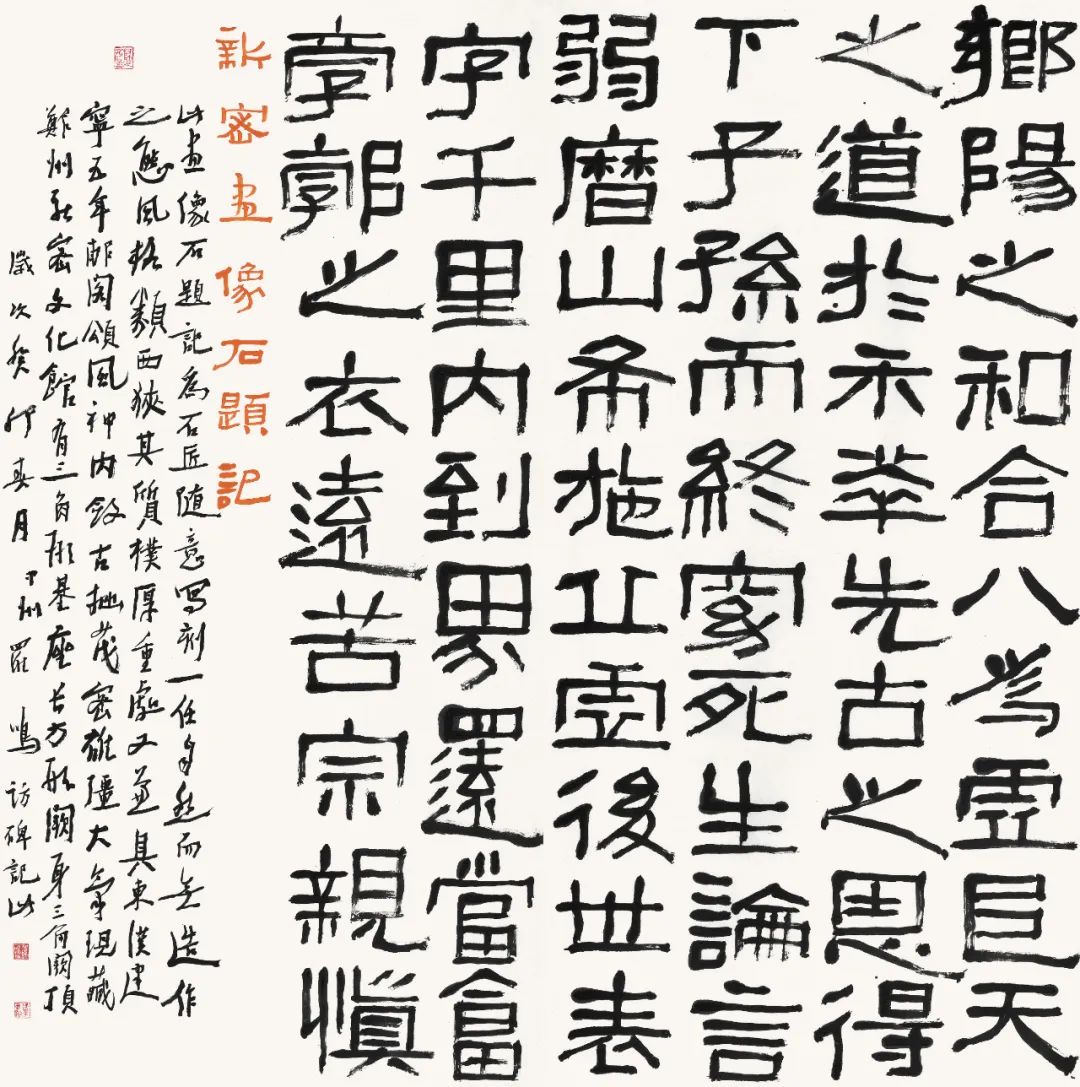 鄉陽之和合八為虛巨天
之道於禾萃先古之恩得
下子孫而終家死生論言
弱曆山希施丘虛後世表
字千里内到界還當富
字郭之衣遠苦宗親慎
新密畫像石題記
此畫像石題記為石匠随意寫刻一任自然而無造作
之態風格類西狹其質樸厚重處又並具東漢建
寧五年郙閣頌風神内斂古拙茂密雄强大氣現藏
鄭州新密文化館有三角形基座長方形闕身三角闕頂
歲次癸卯春月中州羅鳴訪碑記此